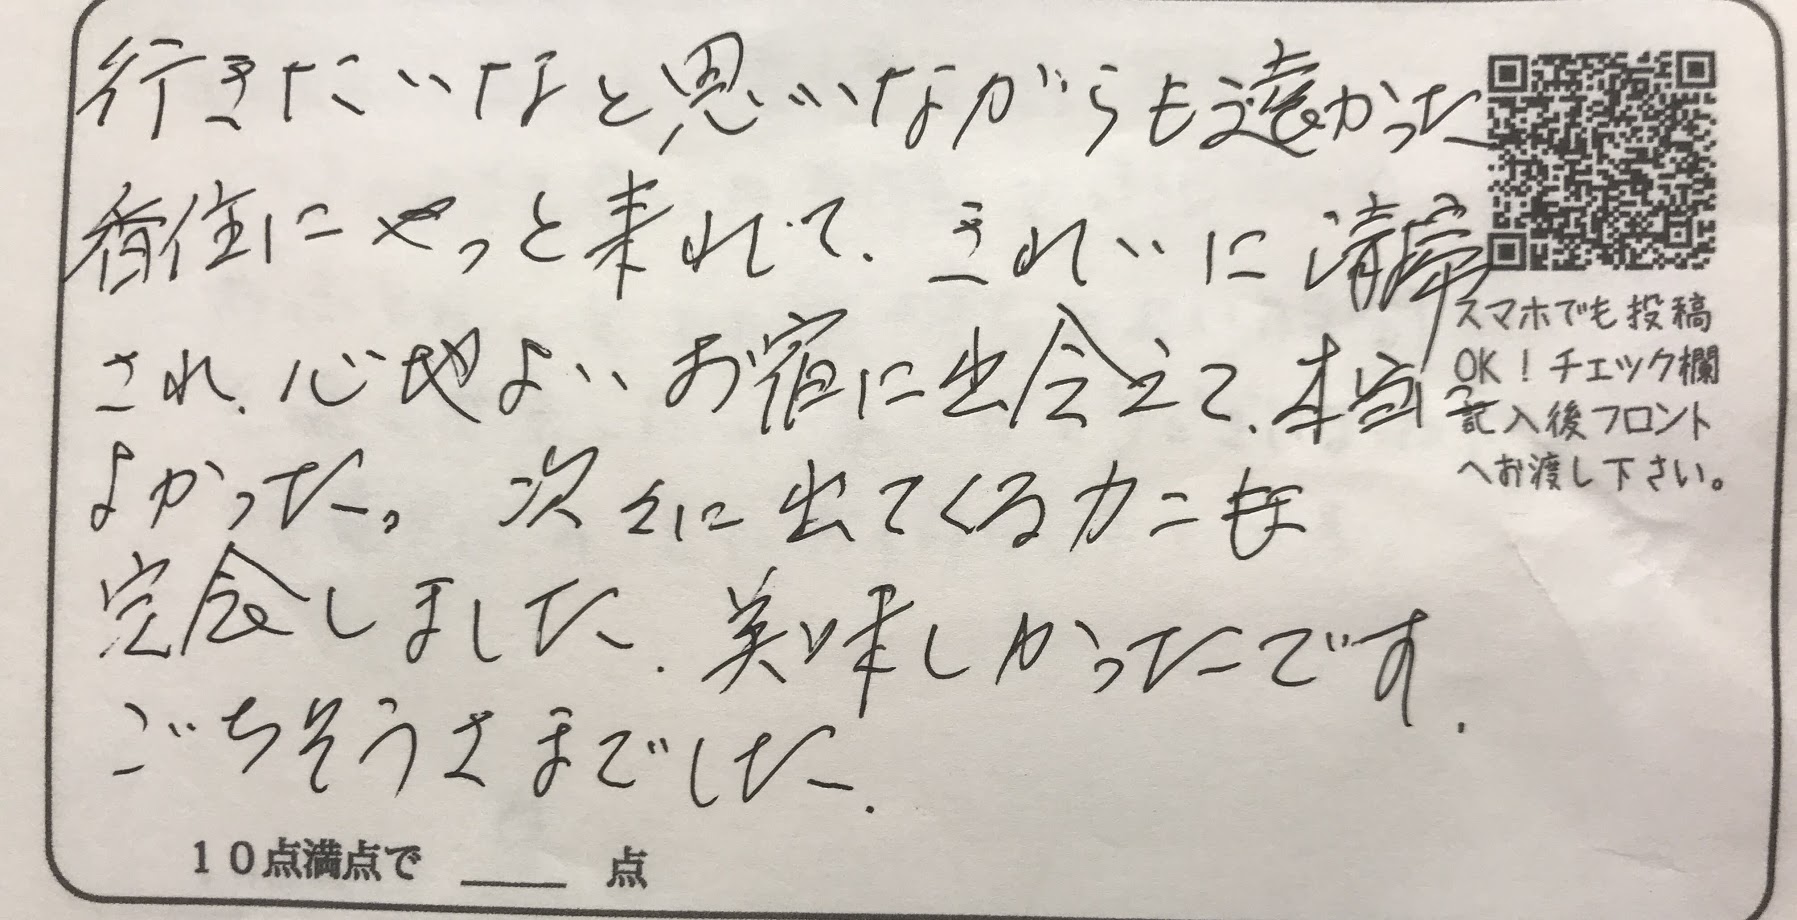 行きたいなと思いながらも遠かった
香住にやっと来れて、きれいに清掃
され、心地よいお宿に出会えて、本当に
よかった。次々に出てくるカニも
完食しました。美味しかったです。
ごちそうさまでした。
スマホでも投稿
OK！チェック欄
記入後フロント
へお渡し下さい。
10点満点で ____ 点